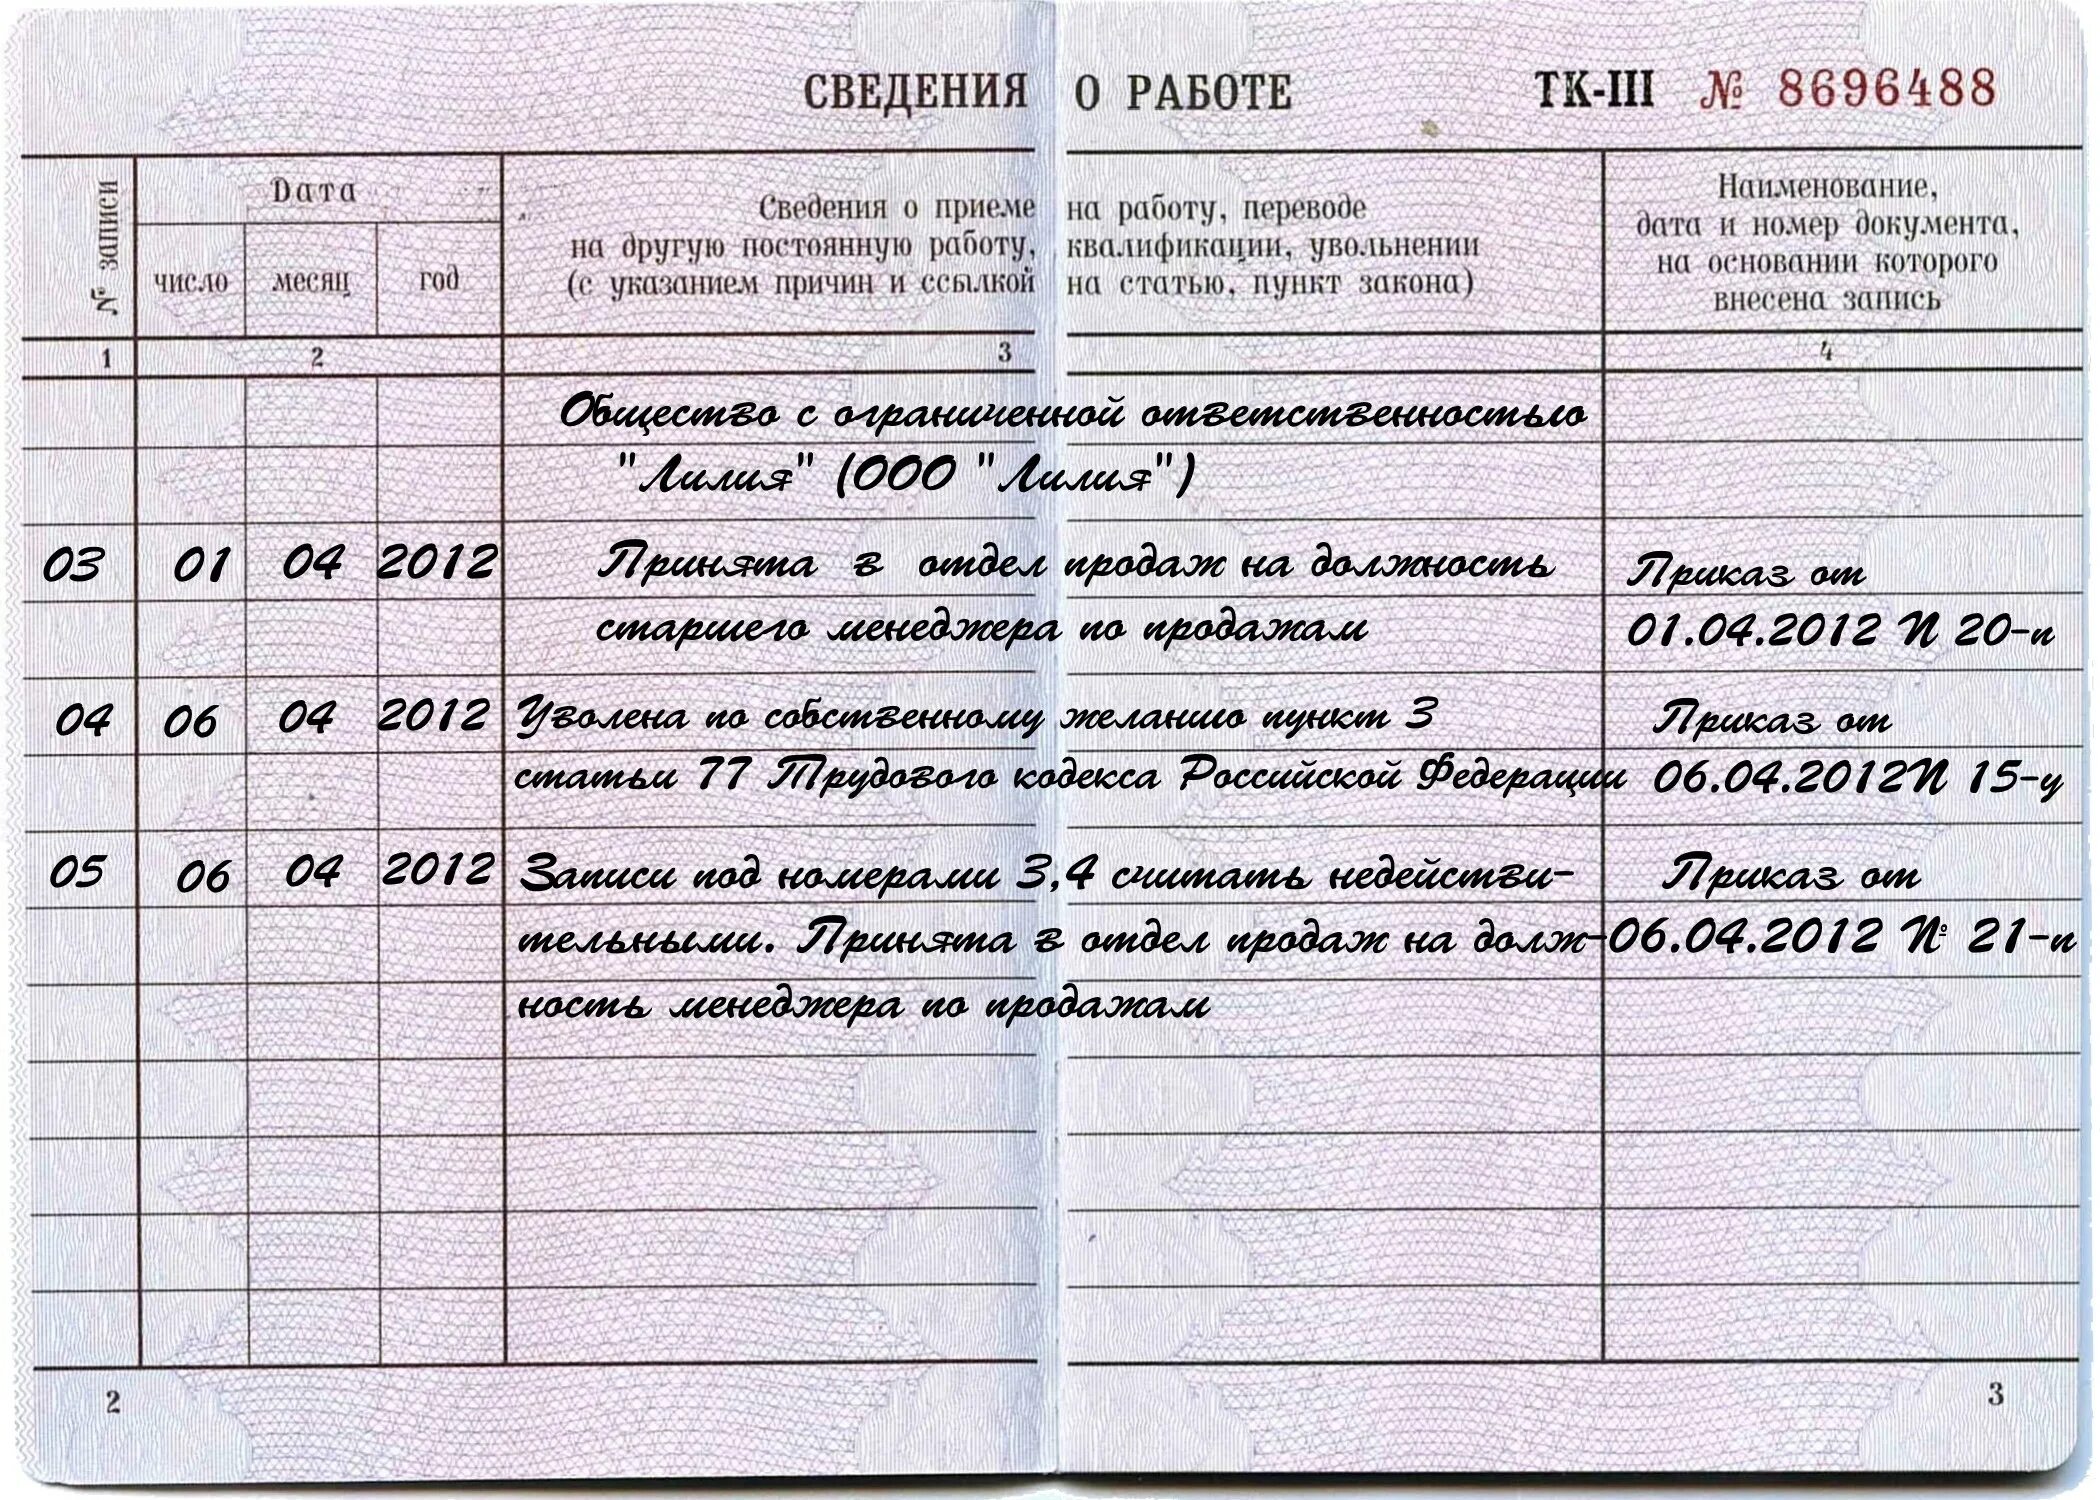 СВЕДЕНИЯ О РАБОТЕ ТК-III № 8696488
№ записи
Дата
число месяц год
Сведения о приеме на работу, переводе
на другую постоянную работу, квалификации, увольнении
(с указанием причин и ссылкой на статью, пункт закона)
Наименование,
дата и номер документа,
на основании которого
внесена запись
1 2 3 4
Общество с ограниченной ответственностью
"Лилия" (ООО "Лилия")
03 01 04 2012 Принята в отдел продаж на должность Приказ от
старшего менеджера по продажам 01.04.2012 N 20-п
04 06 04 2012 Уволена по собственному желанию пункт 3 Приказ от
статьи 77 Трудового кодекса Российской Федерации 06.04.2012N 15-у
05 06 04 2012 Записи под номерами 3,4 считать недействи- Приказ от
тельными. Принята в отдел продаж на долж- 06.04.2012 № 21-п
ность менеджера по продажам
2 3